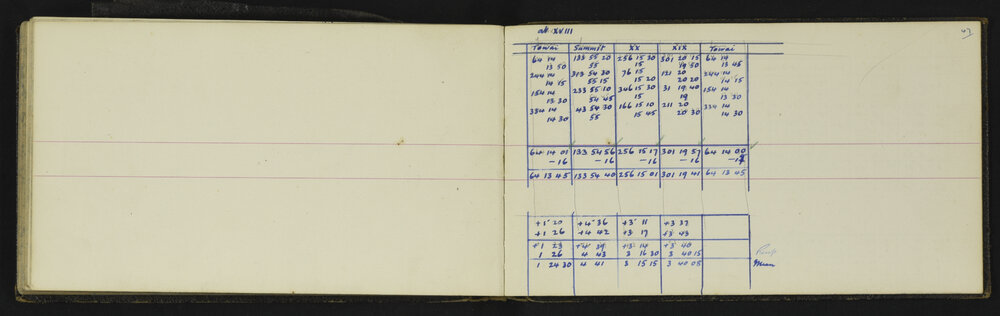 43
at XVIII
Towai Summit XX XIX Towai
64 14 133 55 20 256 15 30 301 20 15 64 14
13 50 55 15 19 50 13 45
244 14 313 54 30 76 15 121 20 244 14
14 15 55 15 15 20 20 20 14 15
154 14 233 55 10 346 15 30 31 19 40 154 14
13 30 54 45 15 19 13 30
334 14 43 54 30 166 15 10 211 20 334 14
14 30 55 15 45 20 30 14 30
64 14 01 133 54 56 256 15 17 301 19 57 64 14 00
-16 -16 -16 -16
64 13 45 133 54 40 256 15 01 301 19 41 64 13 45
+1 20 +4 36 +3 11 +3 37
+1 26 +4 42 +3 17 +3 43
+1 23 +4 39 +3 14 +3 40
1 26 4 43 3 16 30 3 40 15
1 24 30 4 41 3 15 15 3 40 08 Mean